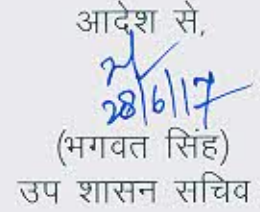 आदेश से,
28/6/17
(भगवत सिंह)
उप शासन सचिव